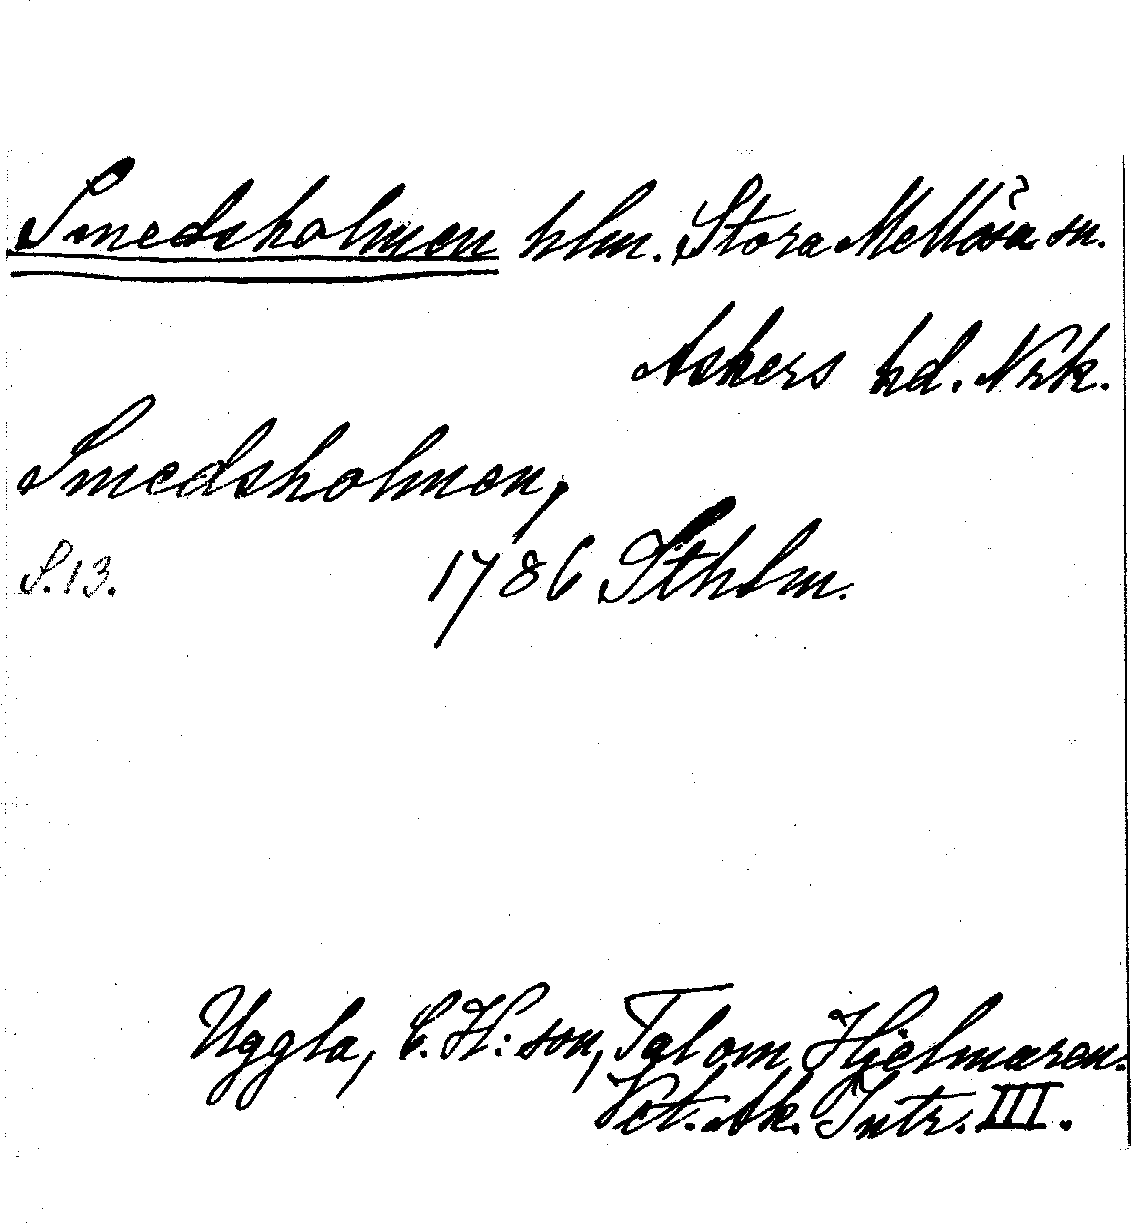 Smedsholmen hlm. Stora Mellösa sn.
?
Askers hd. Nrk.
Smedsholmen,
S. 13. 1786 Sthlm.
Uggla, C. H:son, Tal om Hjelmaren.
Vet. Ak. Intr. III.